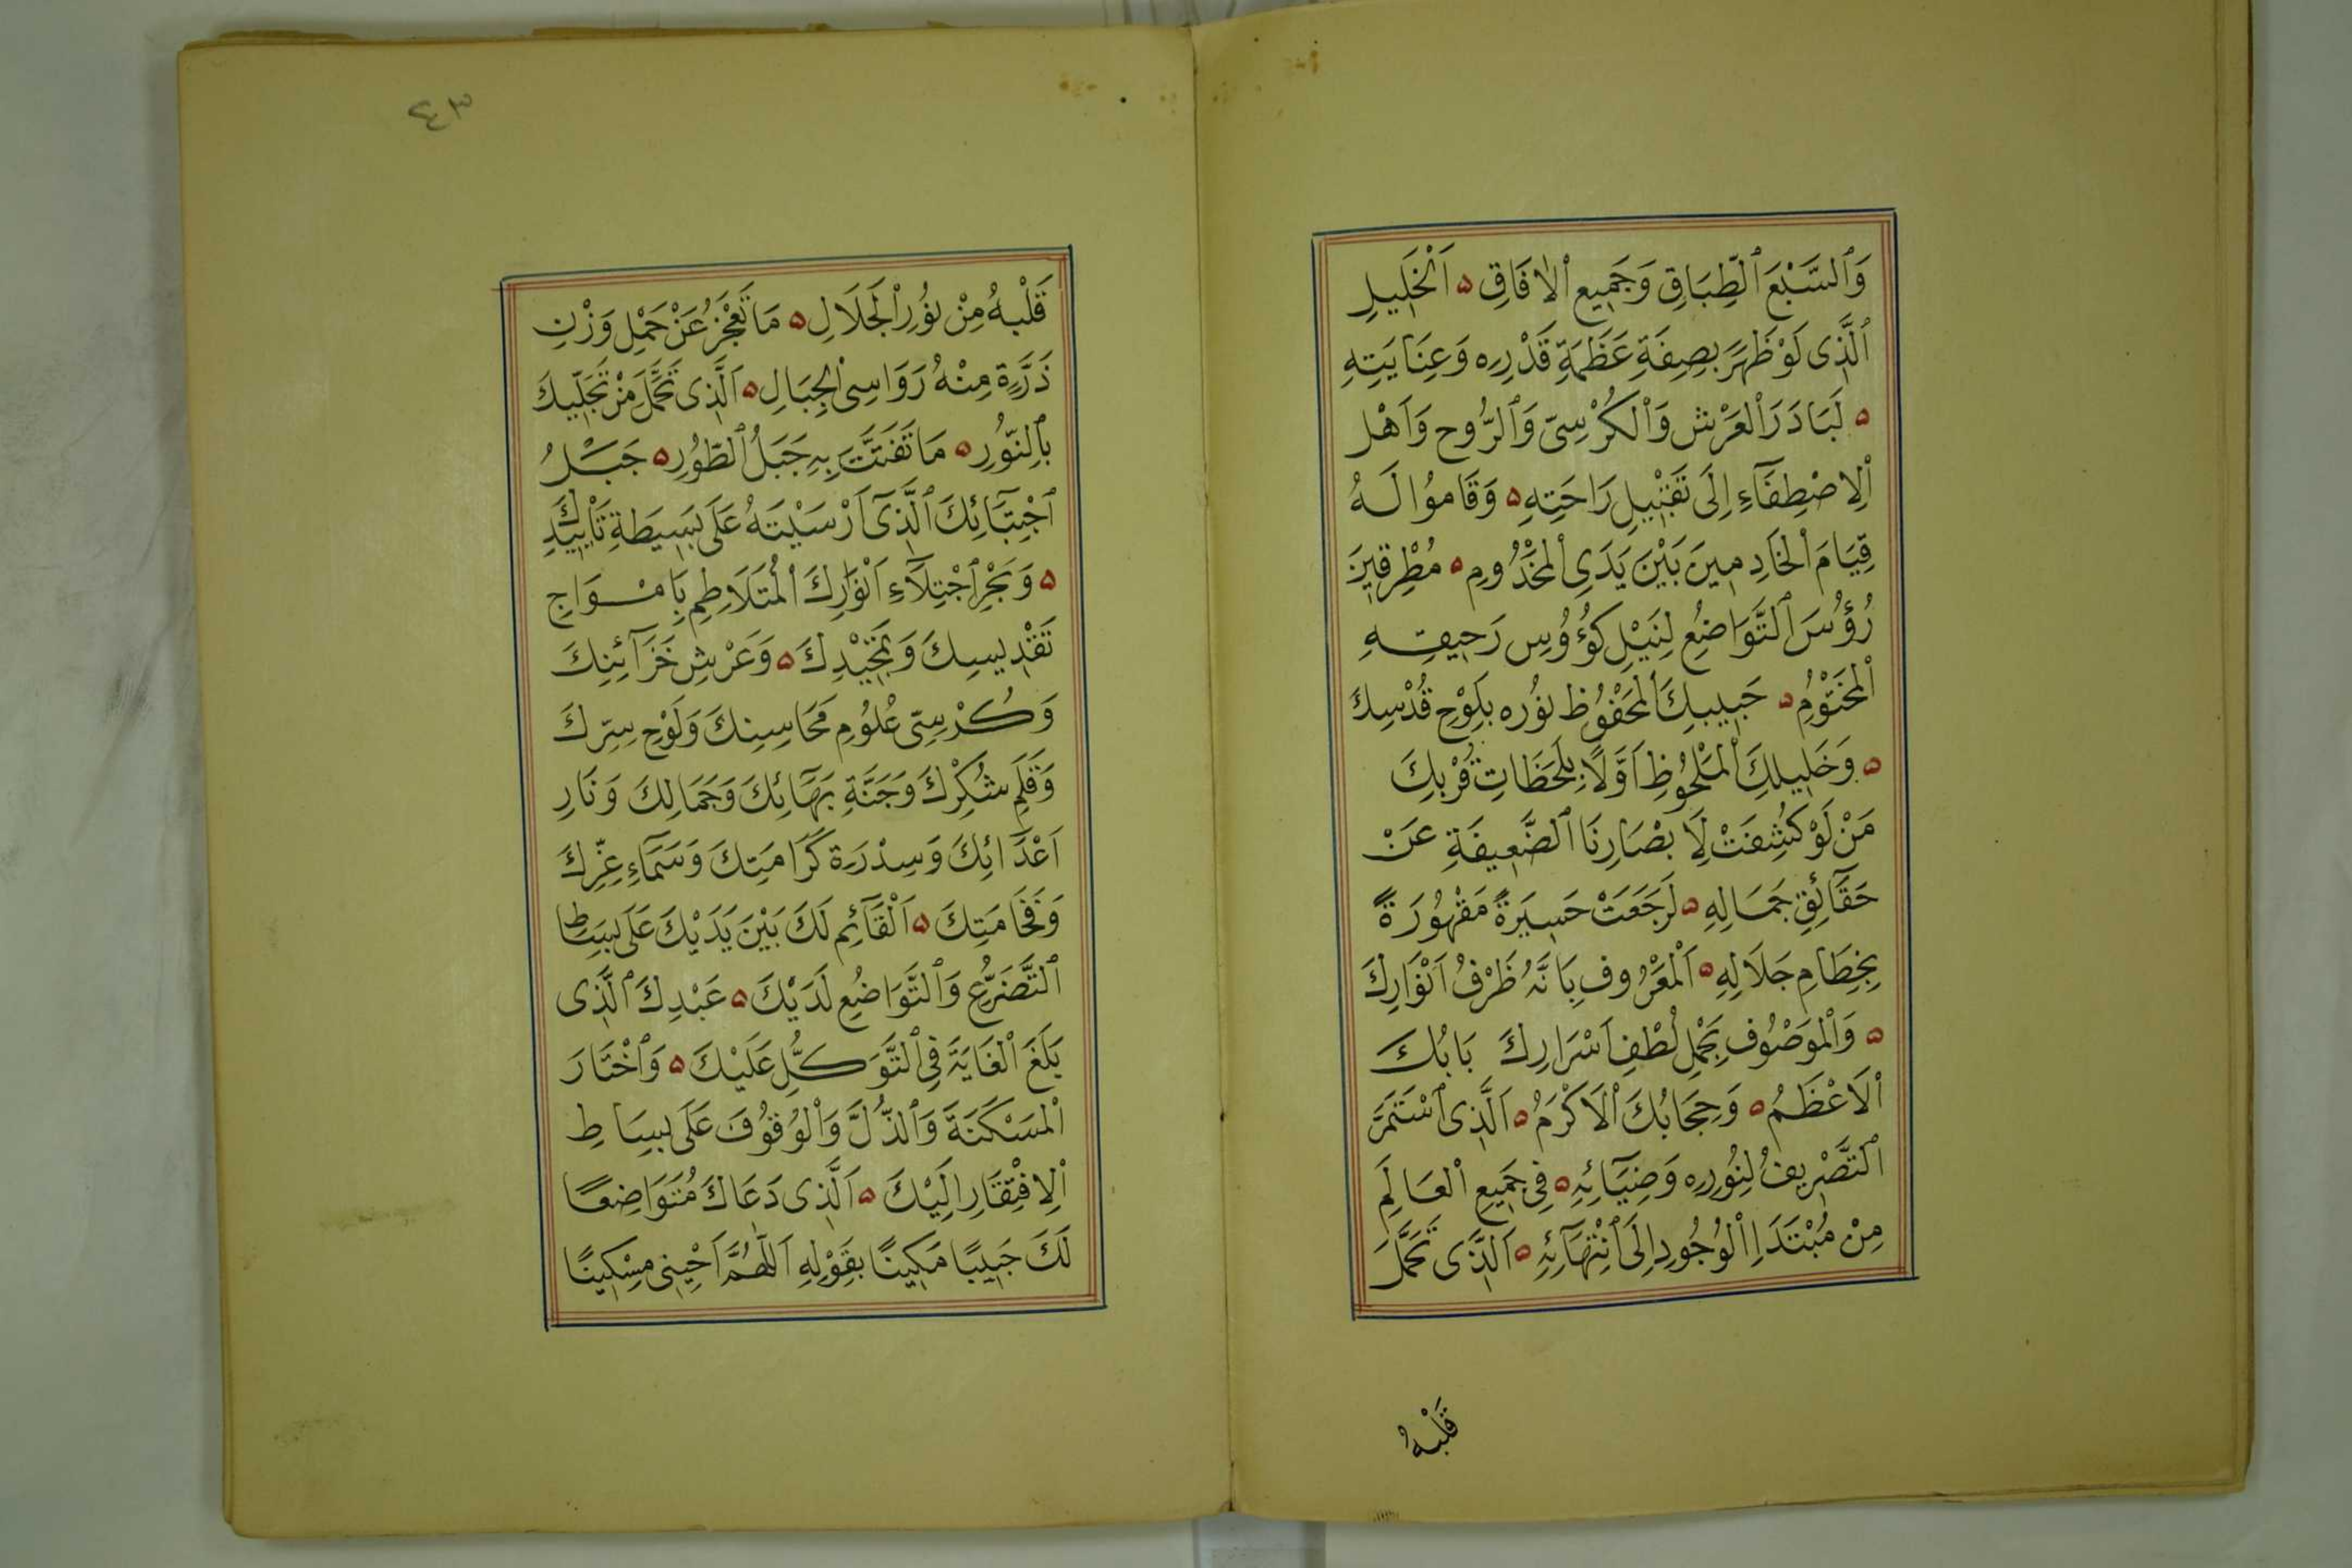 وَٱلسَّبْعَ ٱلطِّبَاقِ وَجَمِيعِ ٱلْاٰفَاقِ ۵ اَلْخَلِيلِ
ٱلَّذِى لَوْظَهَرَ بِصِفَةِ عَظَمَةِ قَدْرِهِ وَعِنَايَتِهِ
۵ لَبَادَرَ ٱلْعَرْشُ وَٱلْكُرْسِىّ وَٱلرُّوح وَاَهْلُ
ٱلْاِصْطِفَآءِ اِلَى تَقْبِيلِ رَاحَتِهِ ۵ وَقَامُوا لَهُ
قِيَامَ ٱلْخَادِمِينَ بَيْنَ يَدَىِ ٱلْمَخْدُومِ ۵ مُطْرِقِينَ
رُؤُسَ ٱلتَّوَاضُعِ لِنَيْلِ كُؤُوسِ رَحِيقِهِ
ٱلْمَخْتُوْمِ ۵ حَبِيبِكَ ٱلْمَحْفُوظِ نُوُره بِلَوْحِ قُدْسِكَ
۵ وَخَلِيلِكَ ٱلْمَلْحُوظِ اَوَّلًا بِلَحَظَاتِ قُرْبِكَ
مَنْ لَوْ كُشِفَتْ لِاَبْصَارِنَا ٱلضَّعِيفَةِ عَنْ
حَقَآئِقِ جَمَالِهِ ۵ لَرَجَعَتْ حَسِيرَةً مَقْهُورَةً
بِخِطَامِ جَلَالِهِ ۵ اَلْمَعْرُوفِ بِاَنَّهُ ظَرْفُ اَنْوَارِكَ
۵ وَٱلْمَوْصُوُفِ بِحَمْلِ لُطْفِ اَسْرَارِكَ بَابُكَ
ٱلْاَعْظَمُ ۵ وَحِجَابُكَ ٱلْاَكْرَمُ ۵ اَلَّذِى ٱسْتَمَرَّ
ٱلتَّصْرِيفُ لِنُوُرِهِ وَضِيَآئِهِ ۵ فِى جَمِيعِ ٱلْعَالَمِ
مِنْ مُبْتَدَاِ ٱلْوُجُودِ اِلَى ٱنْتِهَآئِهِ ۵ اَلَّذِى تَحَمَّلَ
قَلْبُهُ
٤٣
قَلْبُهُ مِنْ نُوُرِ ٱلْجَلَالِ ۵ مَا تَعْجَزُ عَنْ حَمْلِ وَزْنِ
ذَرَّةٍ مِنْهُ رَوَاسِى ٱلْجِبَالِ ۵ اَلَّذِى تَحَمَّلَ مِنْ تَجَلِّيكَ
بِٱلنُّوُرِ ۵ مَا تَفَتَّتَ بِهِ جَبَلُ ٱلطُّوُرِ ۵ جَبَلُ
ٱجْتِبَآئِكَ ٱلَّذِىٓ اَرْسَيْتَهُ عَلَى بَسِيطَةِ تَأْيِيدِكَ
۵ وَبَحْرِ ٱجْتِلَآءِ اَنْوَارِكَ ٱلْمُتَلَاطِمِ بِاَمْوَاجِ
تَقْدِيسِكَ وَتَمْجِيْدِكَ ۵ وَعَرْشِ خَزَآئِنِكَ
وَكُرْسِىّ عُلوُمِ مَحَاسِنِكَ وَلَوْحِ سِرِّكَ
وَقَلَمِ شُكْرِكَ وَجَنَّةِ بَهَآئِكَ وَجَمَالِكَ وَنَارِ
اَعْدَائِكَ وَسِدْرَةِ كَرَامَتِكَ وَسَمَآءِ عِزِّكَ
وَفَخَامَتِكَ ۵ اَلْقَآئِمِ لَكَ بَيْنَ يَدَيْكَ عَلَى بِسَاطِ
ٱلتَّضَرُّعِ وَٱلتَّوَاضُعِ لَدَيْكَ ۵ عَبْدِكَ ٱلَّذِى
بَلَغَ ٱلْغَايَةَ فِى ٱلتَّوَكُّلِ عَلَيْكَ ۵ وَٱخْتَارَ
ٱلْمَسْكَنَةَ وَٱلذُّلَّ وَٱلْوُقُوُفَ عَلَى بِسَاطِ
ٱلْاِفْتِقَارِ اِلَيْكَ ۵ اَلَّذِى دَعَاكَ مُتَوَاضِعًا
لَكَ حَبِيبًا مَكِينًا بِقَوْلِهِ اَللّٰهُمَّ اَحْيِنِى مِسْكِينًا